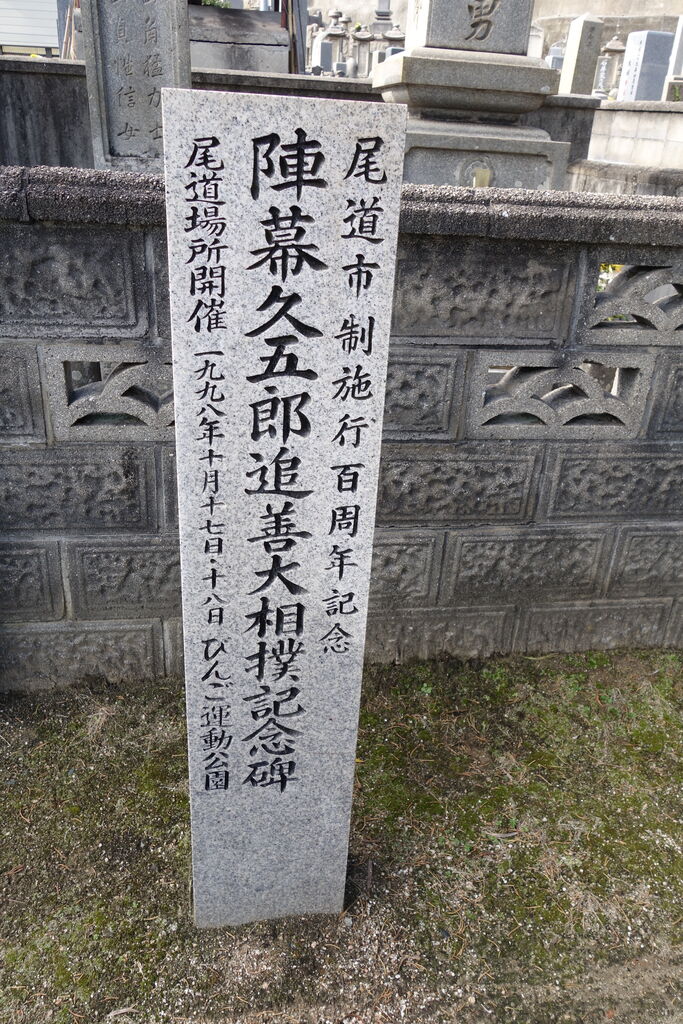 尾道市制施行百周年記念
陣幕久五郎追善大相撲記念碑
尾道場所開催 一九九八年十月十七日・十八日 びんご運動公園
男
貞惟信女